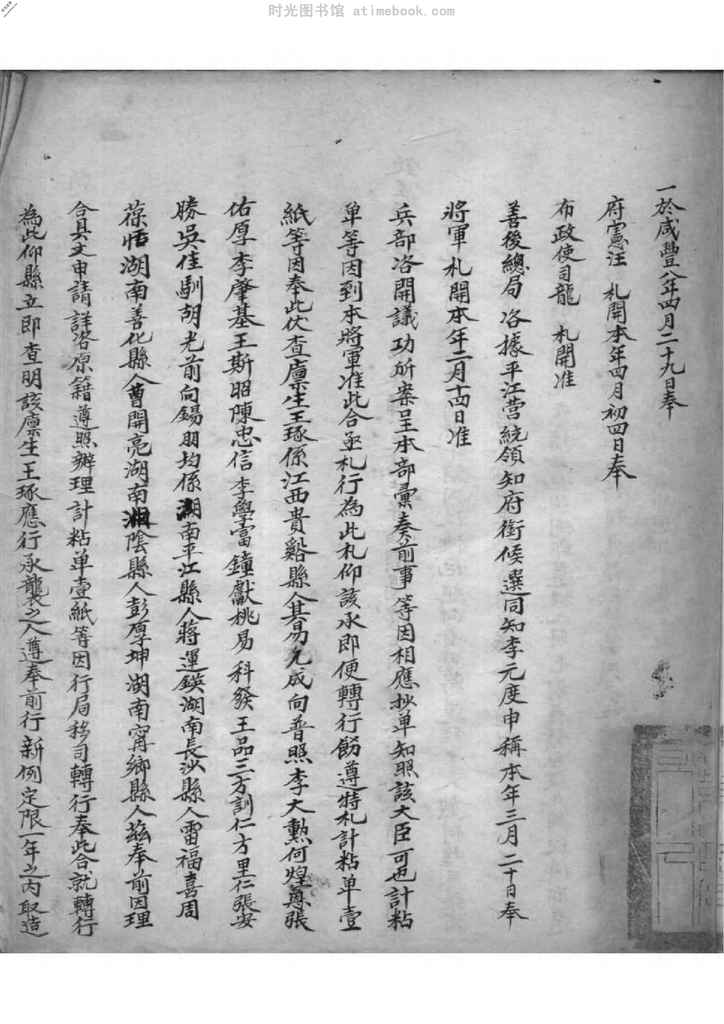 时光图书馆 atimebook.com
一於咸豐八年四月二十九日奉
府憲汪 札開本年四月初四日奉
布政使司龍 札開准
善後總局咨據平江营統領知府銜候選同知李元度申稱本年三月二十日奉
將軍札開本年二月十四日准
兵部咨開議功所案呈本部彙奏前事等因相應抄单知照該大臣可也計粘
单等因到本將軍准此合亟札行為此札仰該承即便轉行飭遵特札計粘单壹
紙等因奉此伏查廪生王琢係江西貴谿縣人其易九成向普照李大勲何煌蔥張
佑厚李肇基王斯昭陳忠信李學富鐘獻桃易科發王品三方訓仁方里仁張安
勝吳佳馴胡光前向錫朋均係湖南平江縣人蔣運鍈湖南長沙縣人雷福喜周
葆恬湖南善化縣人曹開亮湖南湘陰縣人彭厚坤湖南甯鄉縣人兹奉前因理
合具文申請詳咨原籍遵照辦理計粘单壹紙等因行局移司轉行奉此合就轉行
為此仰縣立即查明該廪生王琢應行承襲之人遵奉前行新例定限一年之内取造